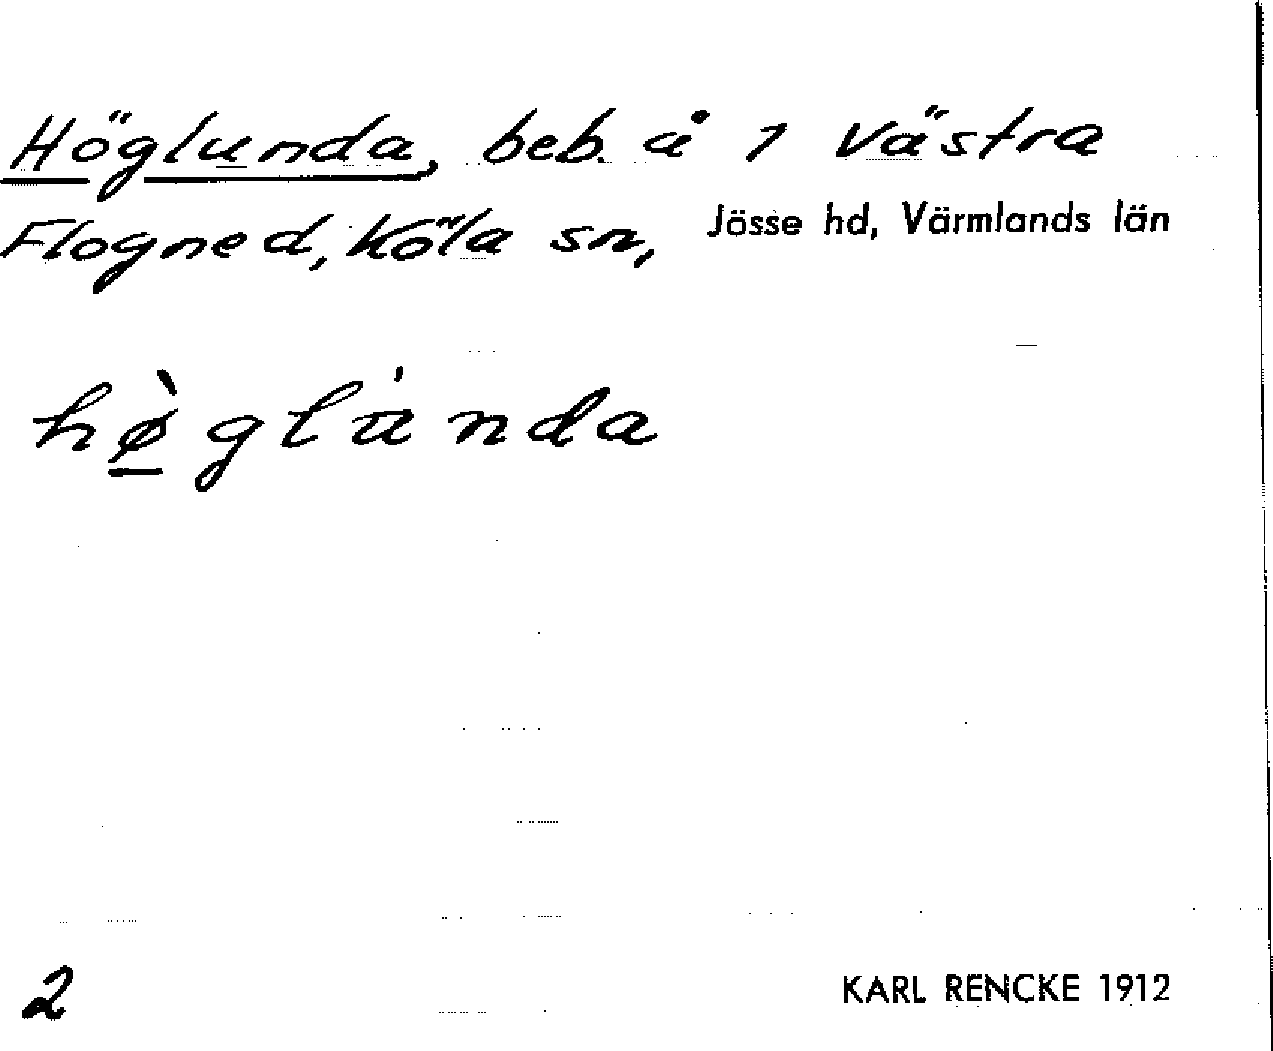 Höglunda, beb. å 1 Västra
Flogned, Köla sn, Jösse hd, Värmlands län
hø̀glùnda
2
KARL RENCKE 1912